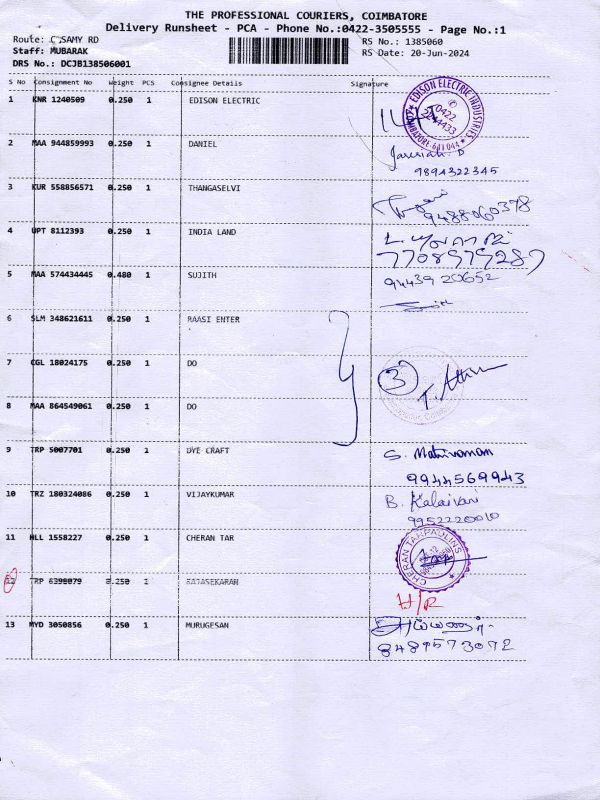 THE PROFESSIONAL COURIERS, COIMBATORE
Delivery Runsheet - PCA - Phone No.:0422-3505555 - Page No.:1
Route: C.SAMY RD
RS No.: 1385060
Staff: MUBARAK
RS Date: 20-Jun-2024
DRS No.: DCJB138506001
S No Consignment No Weight PCS Consignee Details Signature
1 KNR 1240509 0.250 1 EDISON ELECTRIC
EDISON ELECTRIC INDUSTRIES
COIMBATORE-641 044
0422
2 MAA 944859993 0.250 1 DANIEL
9894322345
3 KUR 558856571 0.250 1 THANGASELVI
9488060378
4 UPT 8112393 0.250 1 INDIA LAND
7708575287
5 MAA 574434445 0.480 1 SUJITH 94439 20652
6 SLM 348621611 0.250 1 RAASI ENTER
7 CGL 18024175 0.250 1 DO 3
8 MAA 864549061 0.250 1 DO
9 TRP 5007701 0.250 1 DYE CRAFT S. Mathivanan
9944569943
10 TRZ 180324086 0.250 1 VIJAYKUMAR B. Kalaivani
9952220010
11 HLL 1558227 0.250 1 CHERAN TAR
CHERAN TARPAULINS
12 TRP 6398079 0.250 1 RAJASEKARAN
H/R
13 MYD 3050856 0.250 1 MURUGESAN
8489573072